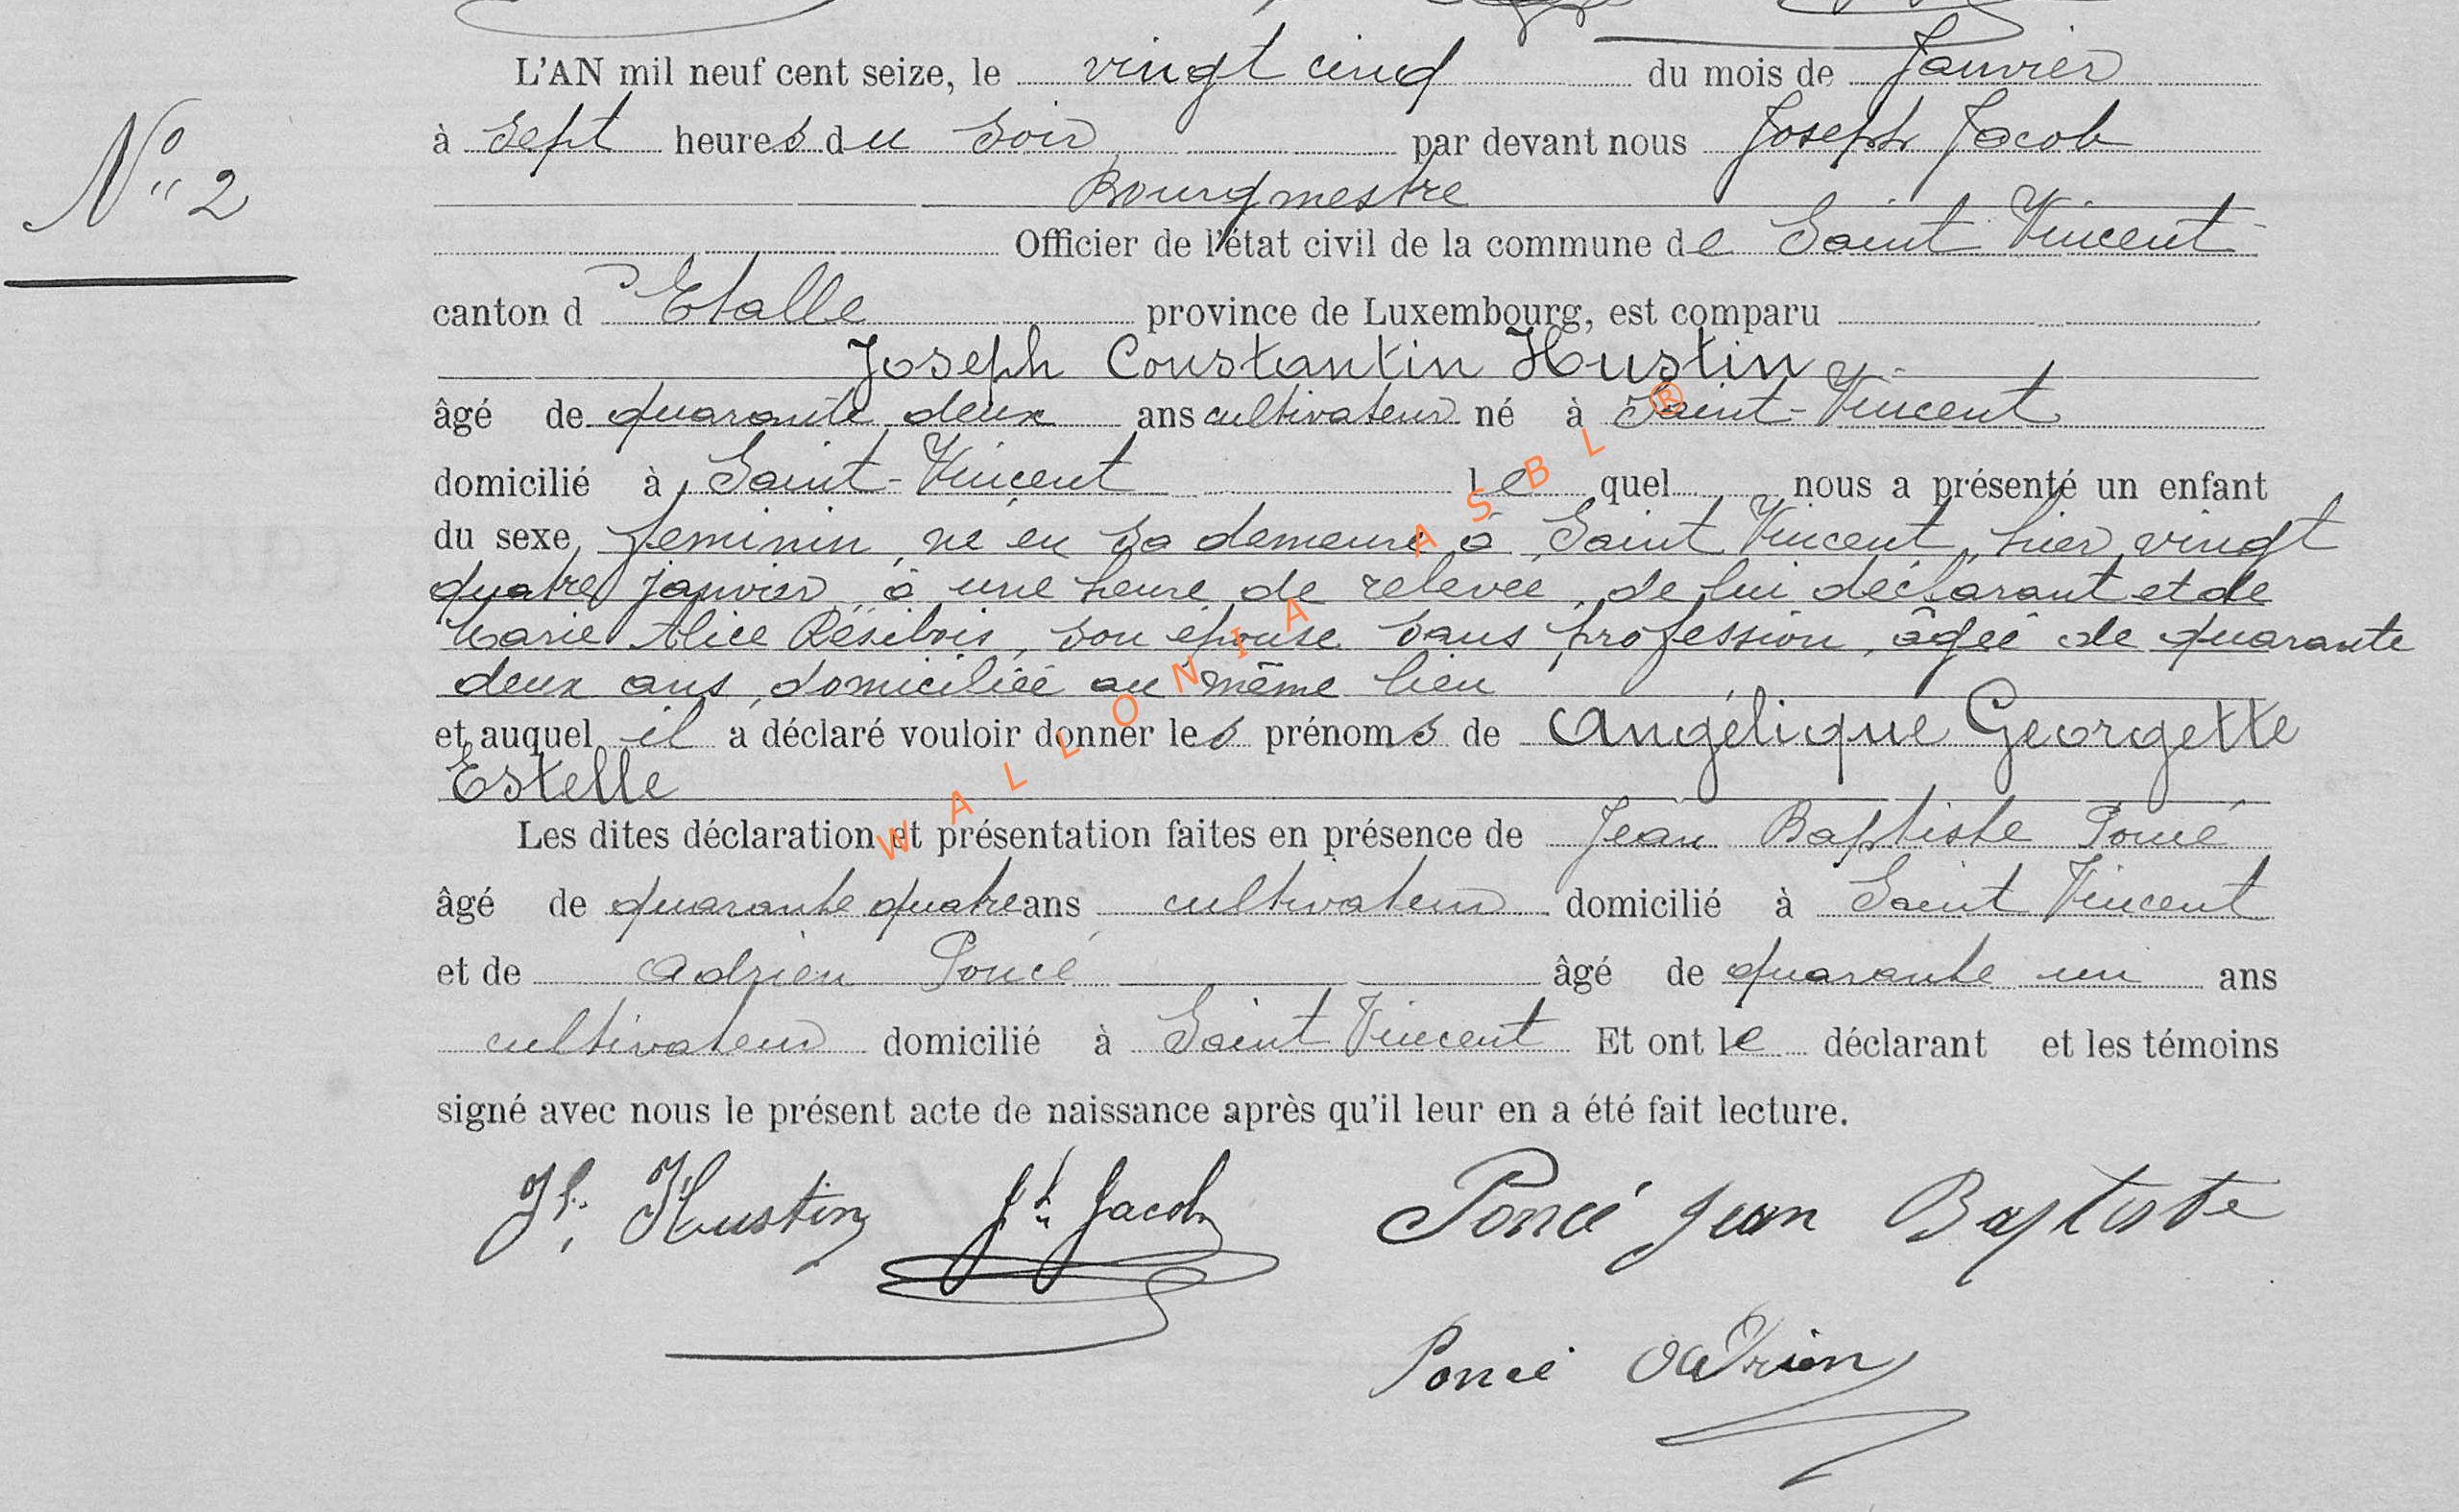 L'AN mil neuf cent seize, le vingt cinq du mois de Janvier
à sept heures du soir par devant nous Joseph Jacob
N° 2
Bourgmestre
Officier de l'état civil de la commune de Saint Vincent
canton d'Etalle province de Luxembourg, est comparu
Joseph Constantin Hustin
âgé de quarante deux ans cultivateur né à Saint-Vincent
domicilié à Saint-Vincent lequel nous a présenté un enfant
du sexe feminin, né en sa demeure à Saint Vincent, hier vingt
quatre janvier à une heure de relevée, de lui déclarant et de
Marie Alice Résibois, son épouse sans profession, âgée de quarante
deux ans, domiciliée au même lieu
et auquel il a déclaré vouloir donner les prénoms de Angélique Georgette
Estelle
Les dites déclaration et présentation faites en présence de Jean Baptiste Poncé
âgé de quarante quatre ans cultivateur domicilié à Saint Vincent
et de Adrien Poncé âgé de quarante un ans
cultivateur domicilié à Saint Vincent Et ont le déclarant et les témoins
signé avec nous le présent acte de naissance après qu'il leur en a été fait lecture.
Jh. Hustin Jh Jacob Poncé Jean Baptiste
Poncé Adrien
WALLONIA ASBL ®